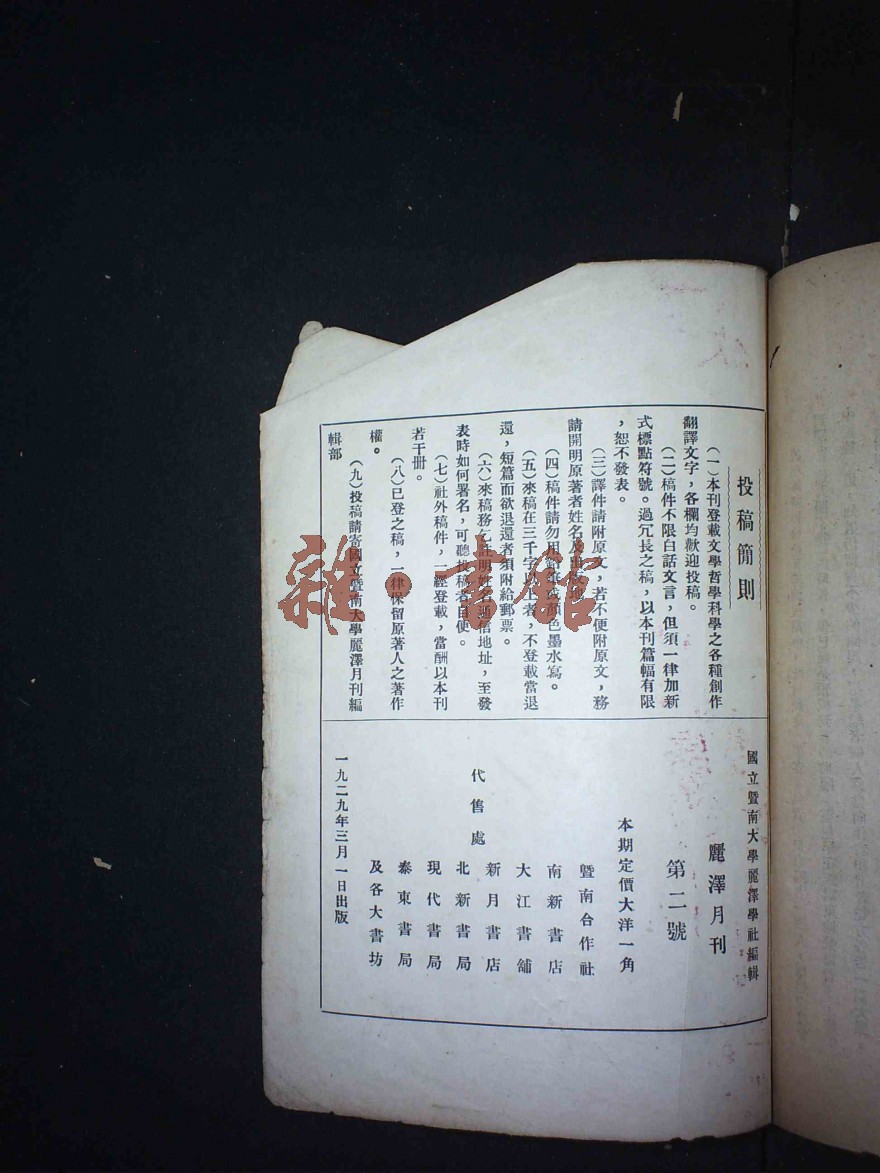 投稿簡則
（一）本刊登載文學哲學科學之各種創作
翻譯文字，各欄均歡迎投稿。
（二）稿件不限白話文言，但須一律加新
式標點符號。過冗長之稿，以本刊篇幅有限
，恕不發表。
（三）譯件請附原文，若不便附原文，務
請開明原著者姓名及出
（四）稿件請勿用鉛筆或顏色墨水寫。
（五）來稿在三千字以上者，不登載當退
還，短篇而欲退還者須附給郵票。
（六）來稿務乞註明姓名通信地址，至發
表時如何署名，可聽投稿者自便。
（七）社外稿件，一經登載，當酬以本刊
若干冊。
（八）已登之稿，一律保留原著人之著作
權。
（九）投稿請寄國立暨南大學麗澤月刊編
輯部
國立暨南大學麗澤學社編輯
麗澤月刊
第二號
本期定價大洋一角
代售處
暨南合作社
南新書店
大江書舖
新月書店
北新書局
現代書局
泰東書局
及各大書坊
一九二九年三月一日出版
雜·書館